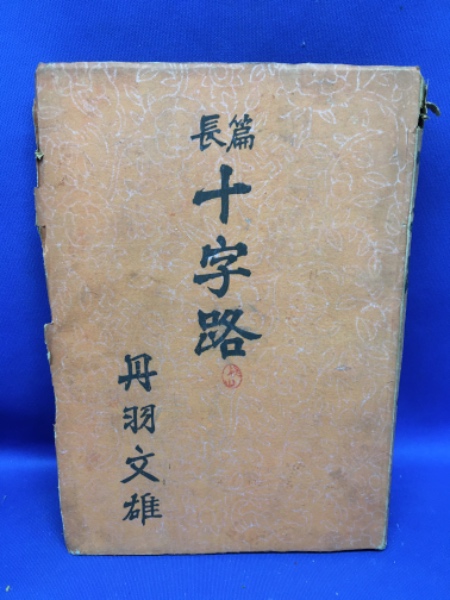 長篇
十字路
丹羽文雄